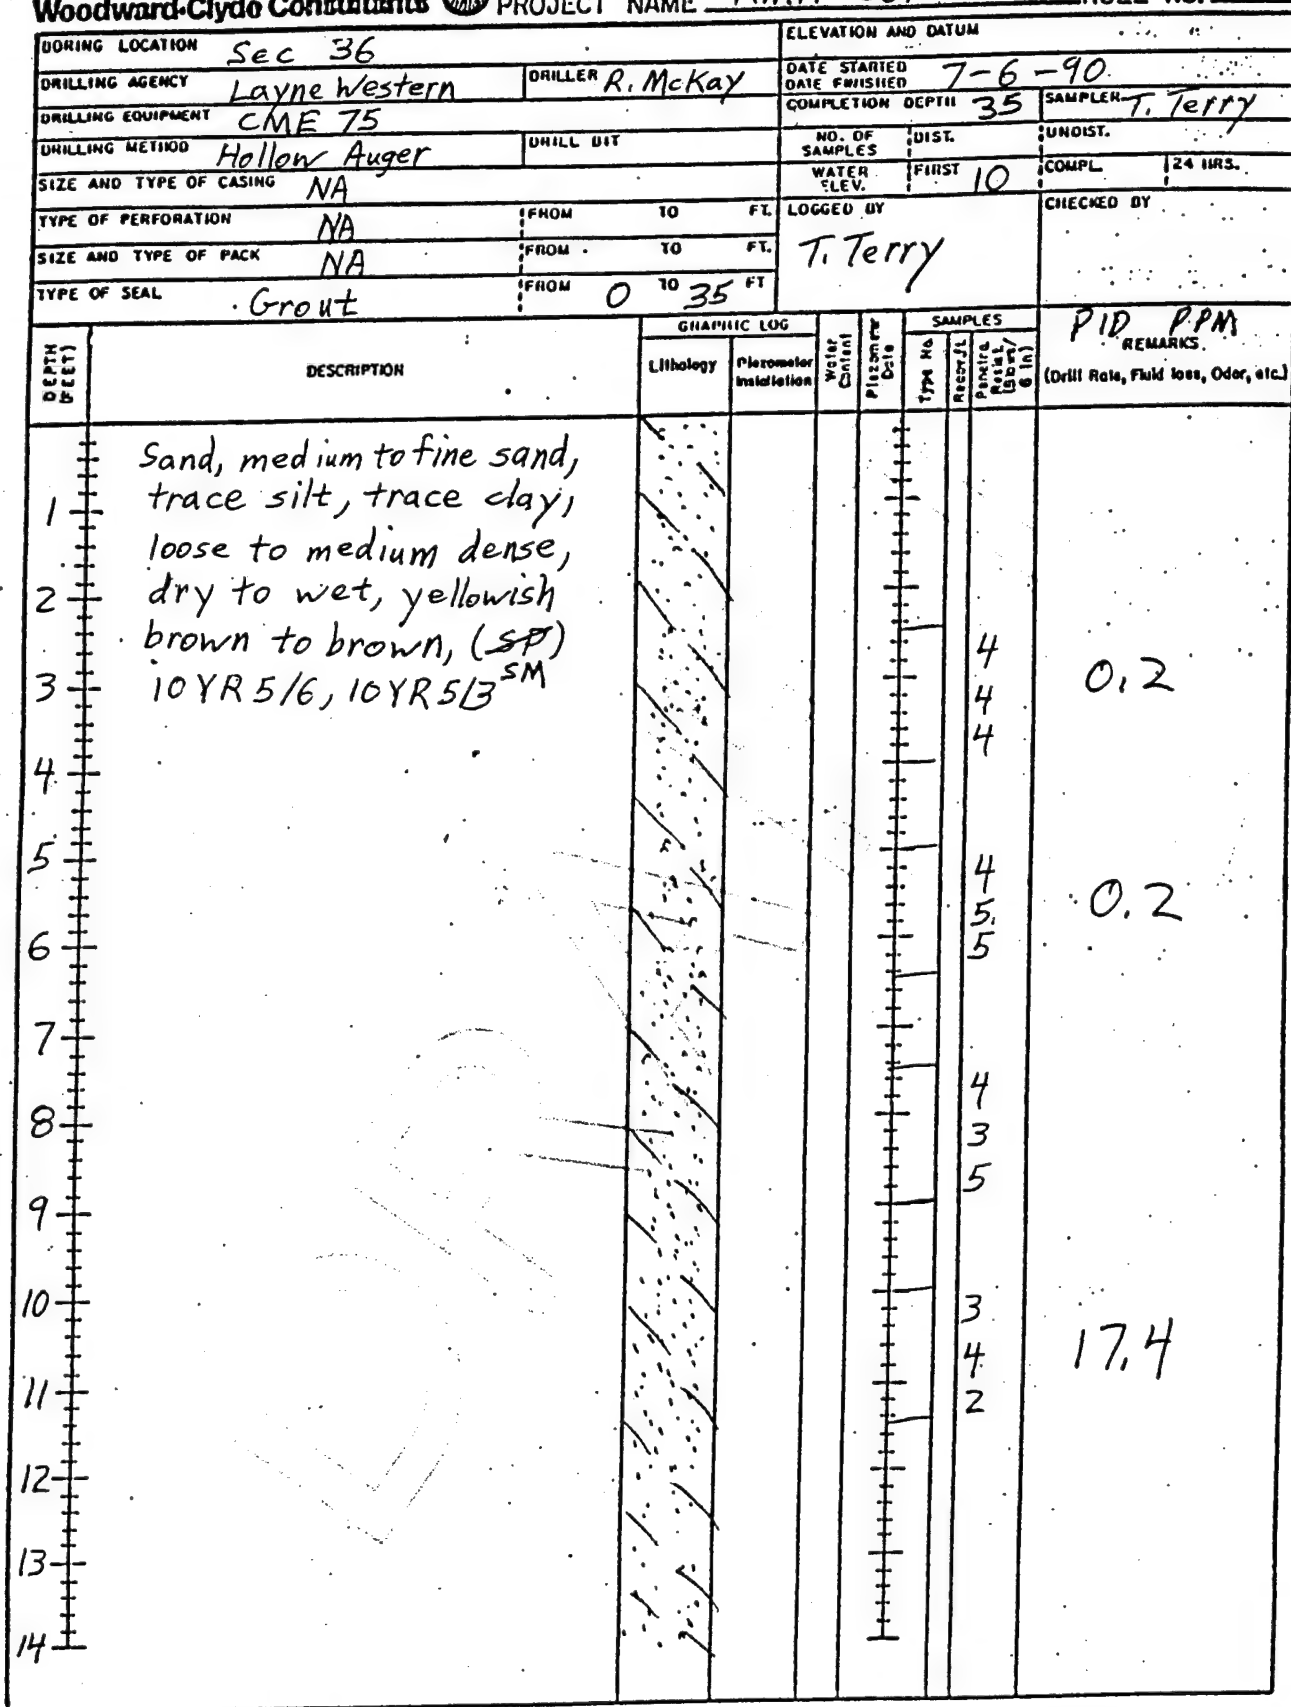 Woodward-Clyde Consultants PROJECT NAME
BORING LOCATION Sec 36
ELEVATION AND DATUM
DRILLING AGENCY Layne Western
DRILLER R. McKay
DATE STARTED
DATE FINISHED 7-6-90
DRILLING EQUIPMENT CME 75
COMPLETION DEPTH 35
SAMPLER T. Terry
DRILLING METHOD Hollow Auger
DRILL BIT
NO. OF SAMPLES
DIST.
UNDIST.
SIZE AND TYPE OF CASING NA
WATER ELEV.
FIRST 10
COMPL.
24 HRS.
TYPE OF PERFORATION NA
FROM TO FT.
LOGGED BY
T. Terry
CHECKED BY
SIZE AND TYPE OF PACK NA
FROM TO FT.
TYPE OF SEAL Grout
FROM 0 TO 35 FT
DEPTH (FEET)
DESCRIPTION
GRAPHIC LOG
Lithology
Piezometer Installation
Water Content
Piezometer Data
SAMPLES
Type No.
Recov.ft.
Penetra. Resist. (Blows/ 6 in)
PID PPM
REMARKS
(Drill Rate, Fluid loss, Odor, etc.)
Sand, medium to fine sand,
trace silt, trace clay,
loose to medium dense,
dry to wet, yellowish
brown to brown, (SP)
SM
10YR 5/6, 10YR 5/3
1
2
3
4
5
6
7
8
9
10
11
12
13
14
4
4
4
0.2
4
5
5
0.2
4
3
5
3
4
2
17.4